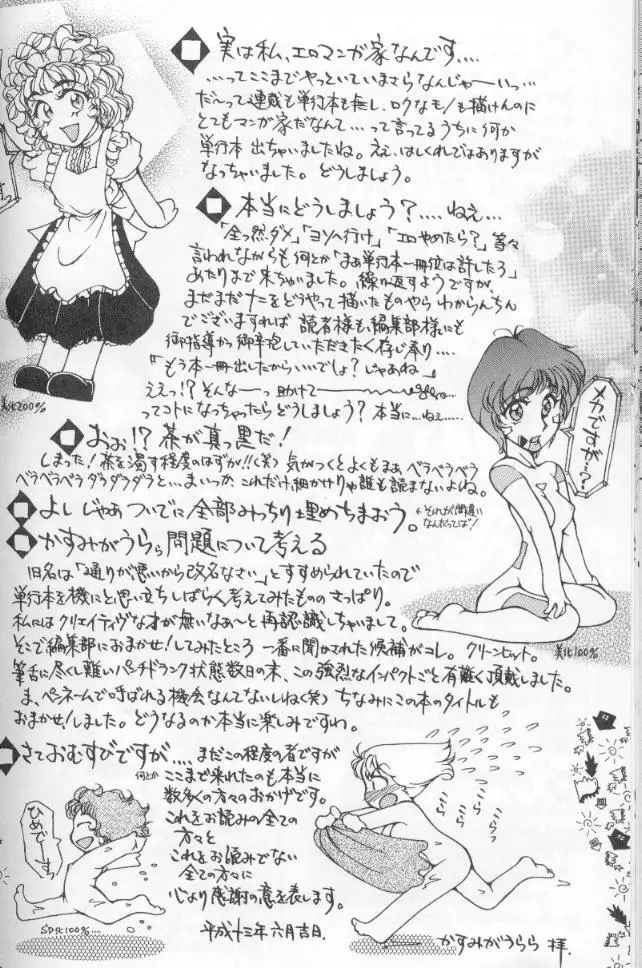 実は私、エロマンガ家なんです....
...ってここまでやっといていまさらなんじゃーいっ...
だ〜って連載も単行本も無し、ロクなモノも描けんのに
とてもマンガ家だなんて...って言ってるうちに何か
単行本 出ちゃいましたね。ええ、はしくれではありますが
なっちゃいました。どうしましょう。
本当にどうしましょう?....ねえ...
「全っ然ダメ」「ヨソへ行け」「エロやめたら?」等々
言われながらも何とか「まあ単行本一冊位は許したろ」
あたりまで来ちゃいました。繰り返すようですが、
まだまだナニをどうやって描いたものやら わからんちん
でございますれば 読者様も編集部様にも
御指導かつ御辛抱していただきたく存じ奉り....
「もう本一冊出したからいいでしょ?じゃあね」
ええっ!?そんなーっ 助けて
ってコトになっちゃったらどうしましょう?本当に...ねえ....
美化200%
メカですが...?
おお!?茶が真っ黒だ!
しまった!茶を濁す程度のはずが!!(笑) 気がつくとよくもまあ ベラベラベラ
ベラベラベラ ダラダラダラと...まいっか、これだけ細かけりゃ誰も読まないよね。
よし じゃあ ついでに全部みっちり埋めちまおう。
それが間違いなんだってば!
かすみがうらら問題について考える
旧名は「通りが悪いから改名なさい」とすすめられていたので
単行本を機にと思い立ちしばらく考えてみたものの さっぱり。
私にはクリエイティヴな才が無いなあ〜と再認識しちゃいまして。
そこで編集部におまかせ!してみたところ 一番に聞かされた候補がコレ。クリーンヒット。
筆舌に尽くし難いパンチドランク状態数日の末、この強烈なインパクトごと有難く頂戴しました。
ま、ペンネームで呼ばれる機会なんてないしねく(笑) ちなみにこの本のタイトルも
おまかせ!しました。どうなるのか本当に楽しみですわ。
美化100%
さておむすびですが....まだこの程度の者ですが
何とか ここまで来れたのも本当に
数多くの方々のおかげです。
これをお読みの全ての
方々と
これをお読みでない
全ての方々に
心より感謝の意を表します。
平成十三年六月吉日.
ひめです。
SD化100%....
うらら
うらら
かすみがうらら 拝.